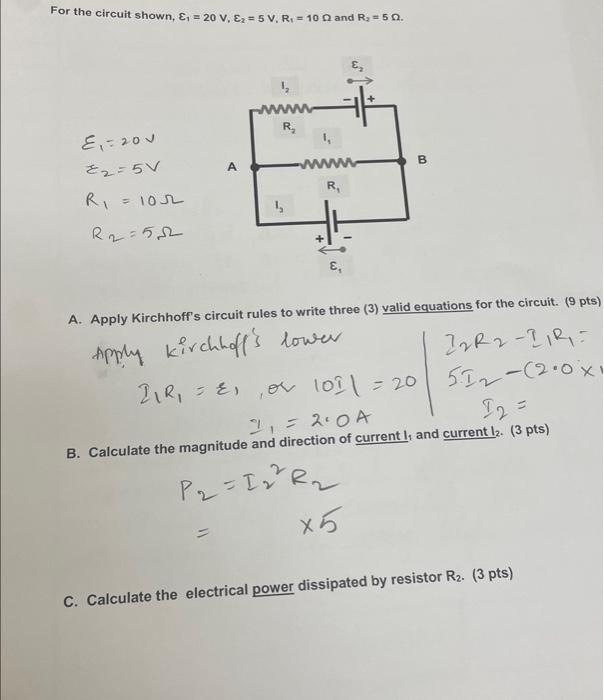 For the circuit shown, Ɛ₁ = 20 V, Ɛ₂ = 5 V, R₁ = 10 Ω and R₂ = 5 Ω.
Ɛ₂
I₂
- +
R₂
I₁
A
B
R₁
I₃
+ -
Ɛ₁
Ɛ₁ = 20V
Ɛ₂ = 5V
R₁ = 10Ω
R₂ = 5Ω
A. Apply Kirchhoff's circuit rules to write three (3) valid equations for the circuit. (9 pts)
Apply Kirchhoff's lower
I₁R₁ = Ɛ₁, or 10I₁ = 20
I₁ = 2.0A
I₂R₂ - I₁R₁ =
5I₂ - (2.0 x
I₂ =
B. Calculate the magnitude and direction of current I₁ and current I₂. (3 pts)
P₂ = I₂²R₂
= x5
C. Calculate the electrical power dissipated by resistor R₂. (3 pts)